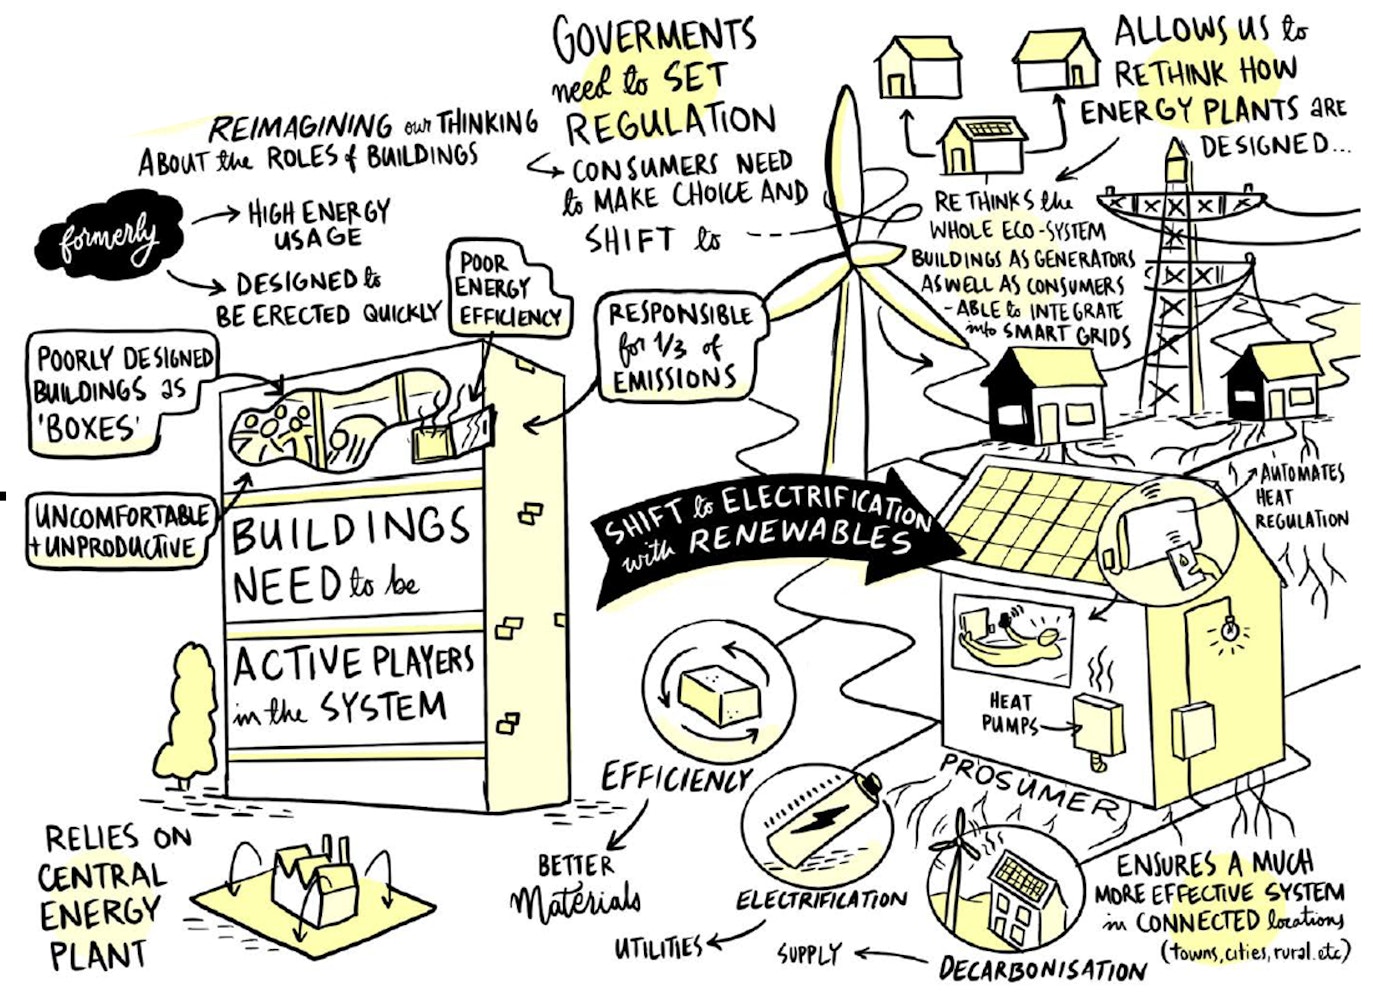 GOVERMENTS
need to SET
REGULATION
CONSUMERS NEED
to MAKE CHOICE AND
SHIFT to
REIMAGINING our THINKING
ABOUT the ROLES of BUILDINGS
formerly
HIGH ENERGY
USAGE
DESIGNED to
BE ERECTED QUICKLY
POOR
ENERGY
EFFICIENCY
RESPONSIBLE
for 1/3 of
EMISSIONS
POORLY DESIGNED
BUILDINGS as
'BOXES'
UNCOMFORTABLE
+ UNPRODUCTIVE
BUILDINGS
NEED to be
ACTIVE PLAYERS
in the SYSTEM
RELIES ON
CENTRAL
ENERGY
PLANT
ALLOWS US to
RETHINK HOW
ENERGY PLANTS ARE
DESIGNED...
RETHINKS the
WHOLE ECO-SYSTEM
BUILDINGS AS GENERATORS
AS WELL AS CONSUMERS
- ABLE to INTEGRATE
into SMART GRIDS
SHIFT to ELECTRIFICATION
with RENEWABLES
AUTOMATES
HEAT
REGULATION
HEAT
PUMPS
PROSUMER
EFFICIENCY
BETTER
Materials
ELECTRIFICATION
UTILITIES
SUPPLY
DECARBONISATION
ENSURES A MUCH
MORE EFFECTIVE SYSTEM
in CONNECTED locations
(towns, cities, rural. etc)